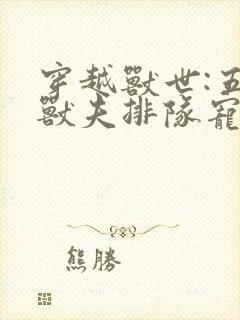 穿越獸世:五
獸夫排隊寵
熊勝